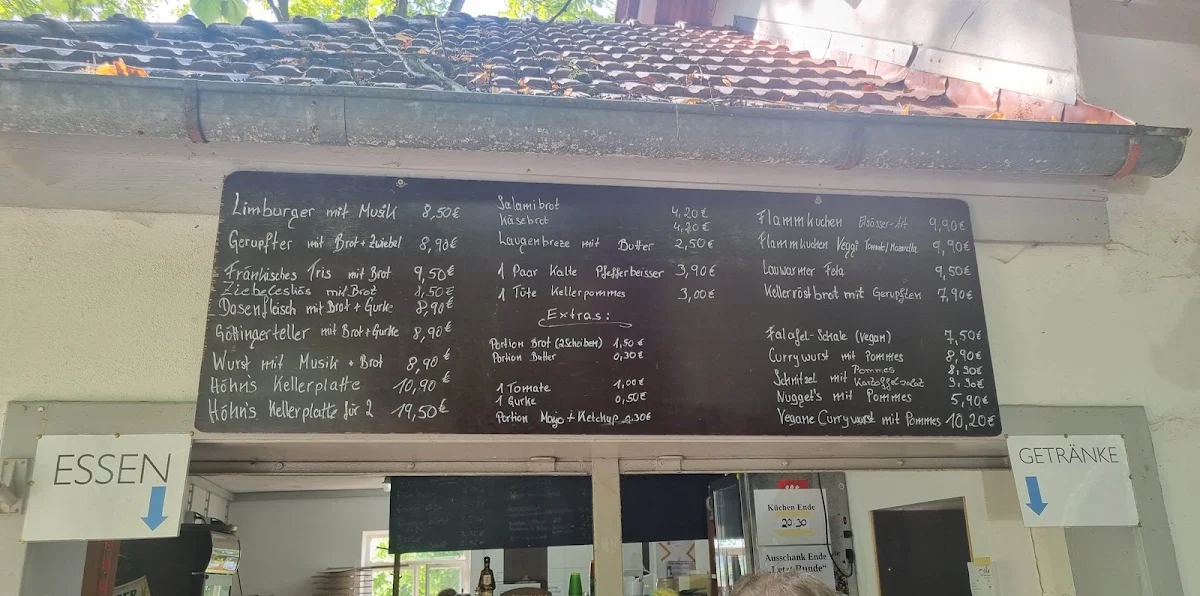 Limburger mit Musik 8,50€
Gerupfter mit Brot + Zwiebel 8,90€
Fränkisches Tris mit Brot 9,50€
Ziebeleskäs mit Brot 8,50€
Dosenfleisch mit Brot + Gurke 8,90€
Göttingerteller mit Brot + Gurke 8,90€
Wurst mit Musik + Brot 8,90€
Höhn's Kellerplatte 10,90€
Höhn's Kellerplatte für 2 19,50€
Salamibrot 4,20€
Käsebrot 4,20€
Laugenbreze mit Butter 2,50€
1 Paar Kalte Pfefferbeisser 3,90€
1 Tüte Kellerpommes 3,00€
Extras:
Portion Brot (2 Scheiben) 1,50€
Portion Butter 0,30€
1 Tomate 1,00€
1 Gurke 0,50€
Portion Mayo + Ketchup 0,30€
Flammkuchen Elsässer-Art 9,90€
Flammkuchen Veggi Tomate/Mozarella 9,90€
Lauwarmer Feta 9,50€
Kellerröstbrot mit Gerupften 7,90€
Falafel-Schale (Vegan) 7,50€
Currywurst mit Pommes 8,90€
Schnitzel mit Pommes 8,90€
Kartoffelsalat 9,90€
Nugget's mit Pommes 5,90€
Vegane Currywurst mit Pommes 10,20€
ESSEN
GETRÄNKE
Küchen Ende
20:30
Ausschank Ende
„Letzte Runde“